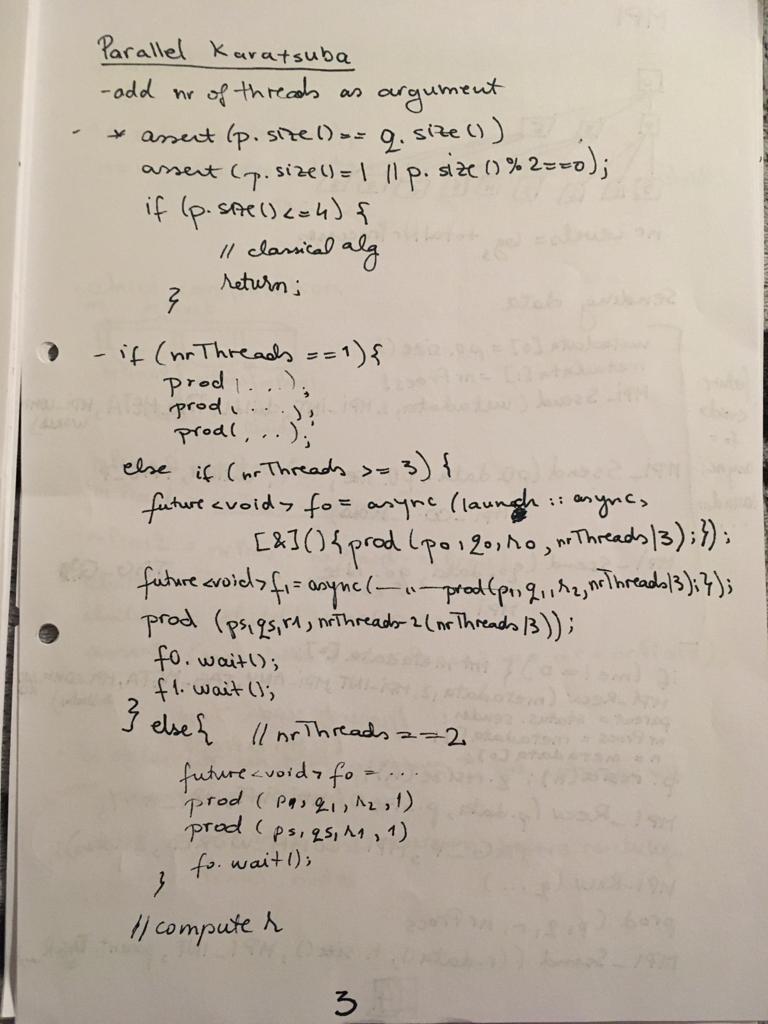 Parallel Karatsuba
-add nr of threads as argument
- * assert (p.size() == q.size())
assert (p.size()=1 || p.size()%2==0);
if (p.size()<=4) {
// classical alg
return;
}
- if (nrThreads ==1){
prod(...);
prod(...);
prod(...);
else if (nrThreads >= 3) {
future<void> f0 = async (launch :: async,
[&](){prod (p0,q0,r0,nrThreads/3);});
future<void> f1=async(—〃—prod(p1,q1,r2,nrThreads/3);});
prod (ps,qs,r1,nrThreads-2(nrThreads/3));
f0.wait();
f1.wait();
} else{ // nrThreads ==2
future<void> f0 = ...
prod (p1,q1,r2,1)
prod (ps,qs,r1,1)
f0.wait();
}
// compute r
3